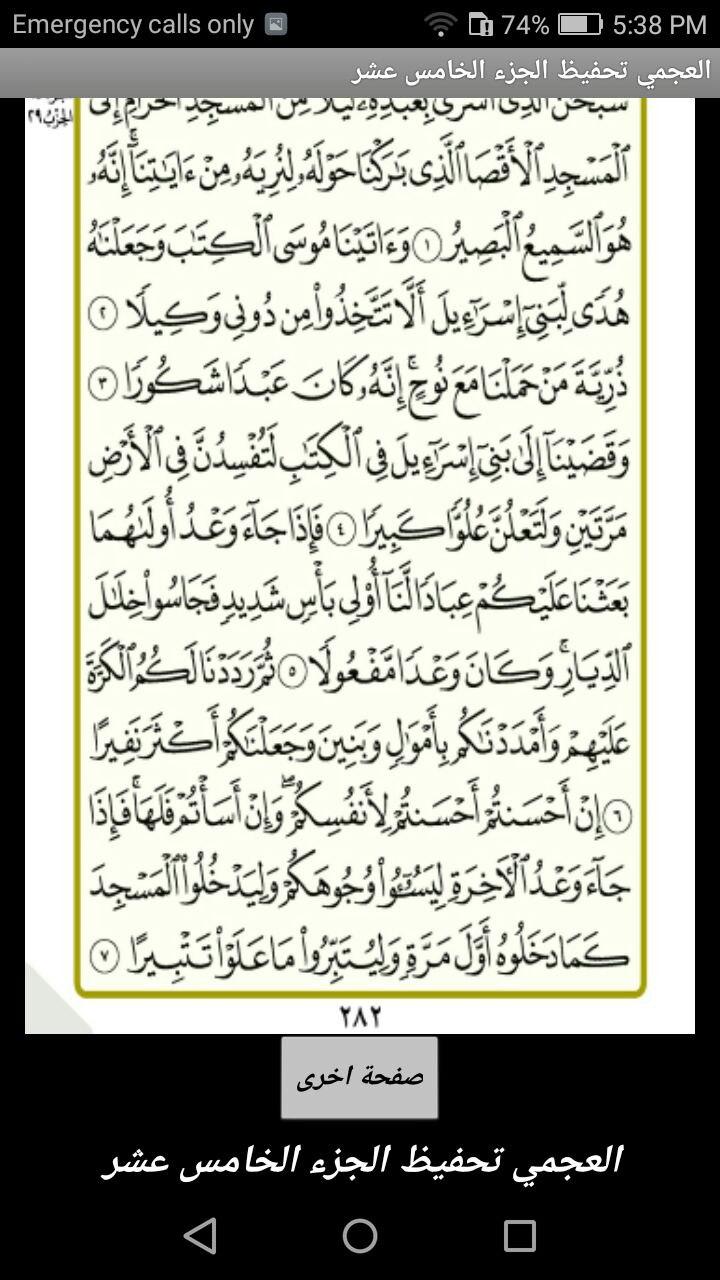 Emergency calls only 74% 5:38 PM
العجمي تحفيظ الجزء الخامس عشر
سُبْحَٰنَ ٱلَّذِىٓ أَسْرَىٰ بِعَبْدِهِۦ لَيْلًا مِّنَ ٱلْمَسْجِدِ ٱلْحَرَامِ إِلَى
الحزب ٢٩
ٱلْمَسْجِدِ ٱلْأَقْصَا ٱلَّذِى بَٰرَكْنَا حَوْلَهُۥ لِنُرِيَهُۥ مِنْ ءَايَٰتِنَآ ۚ إِنَّهُۥ
هُوَ ٱلسَّمِيعُ ٱلْبَصِيرُ ١ وَءَاتَيْنَا مُوسَى ٱلْكِتَٰبَ وَجَعَلْنَٰهُ
هُدًى لِّبَنِىٓ إِسْرَٰٓءِيلَ أَلَّا تَتَّخِذُوا۟ مِن دُونِى وَكِيلًا ٢
ذُرِّيَّةَ مَنْ حَمَلْنَا مَعَ نُوحٍ ۚ إِنَّهُۥ كَانَ عَبْدًا شَكُورًا ٣
وَقَضَيْنَآ إِلَىٰ بَنِىٓ إِسْرَٰٓءِيلَ فِى ٱلْكِتَٰبِ لَتُفْسِدُنَّ فِى ٱلْأَرْضِ
مَرَّتَيْنِ وَلَتَعْلُنَّ عُلُوًّا كَبِيرًا ٤ فَإِذَا جَآءَ وَعْدُ أُولَىٰهُمَا
بَعَثْنَا عَلَيْكُمْ عِبَادًا لَّنَآ أُو۟لِى بَأْسٍ شَدِيدٍ فَجَاسُوا۟ خِلَٰلَ
ٱلدِّيَارِ ۚ وَكَانَ وَعْدًا مَّفْعُولًا ٥ ثُمَّ رَدَدْنَا لَكُمُ ٱلْكَرَّةَ
عَلَيْهِمْ وَأَمْدَدْنَٰكُم بِأَمْوَٰلٍ وَبَنِينَ وَجَعَلْنَٰكُمْ أَكْثَرَ نَفِيرًا
٦ إِنْ أَحْسَنتُمْ أَحْسَنتُمْ لِأَنفُسِكُمْ ۖ وَإِنْ أَسَأْتُمْ فَلَهَا ۚ فَإِذَا
جَآءَ وَعْدُ ٱلْءَاخِرَةِ لِيَسُۥٓـُٔوا۟ وُجُوهَكُمْ وَلِيَدْخُلُوا۟ ٱلْمَسْجِدَ
كَمَا دَخَلُوهُ أَوَّلَ مَرَّةٍ وَلِيُتَبِّرُوا۟ مَا عَلَوْا۟ تَتْبِيرًا ٧
٢٨٢
صفحة اخرى
العجمي تحفيظ الجزء الخامس عشر